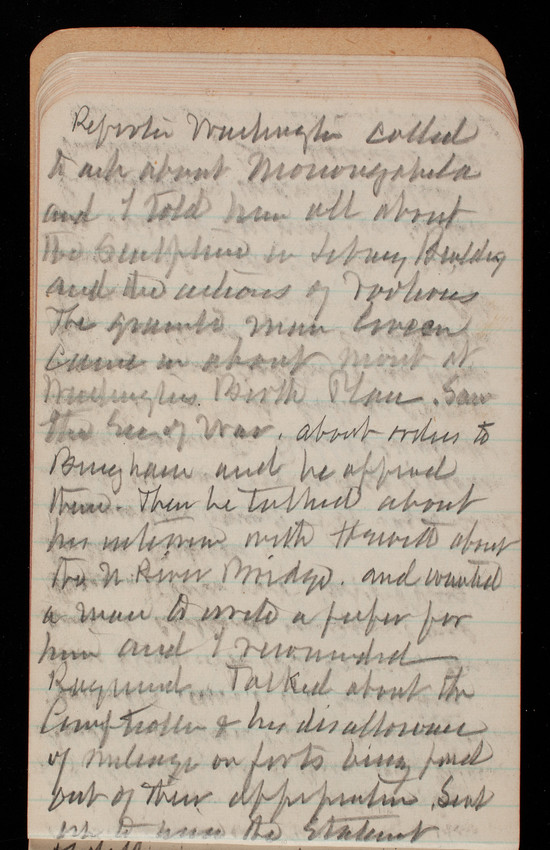 Reporter Washington called
to ask about Monongahela
and I told him all about
the Sculpture in Library Building
and the actions of various
The granite man Green
Came in about Mont at
Washingtons Birth Place. Saw
the Sec of War. about orders to
Bingham and he approved
them. Then he talked about
his interview with Hewitt about
the N. River Bridge. and wanted
a man to write a paper for
him and I recommended
Raymond. Talked about the
Comptroller & his disallowance
of mileage on forts being paid
out of their appropriation. Sent
the Statement